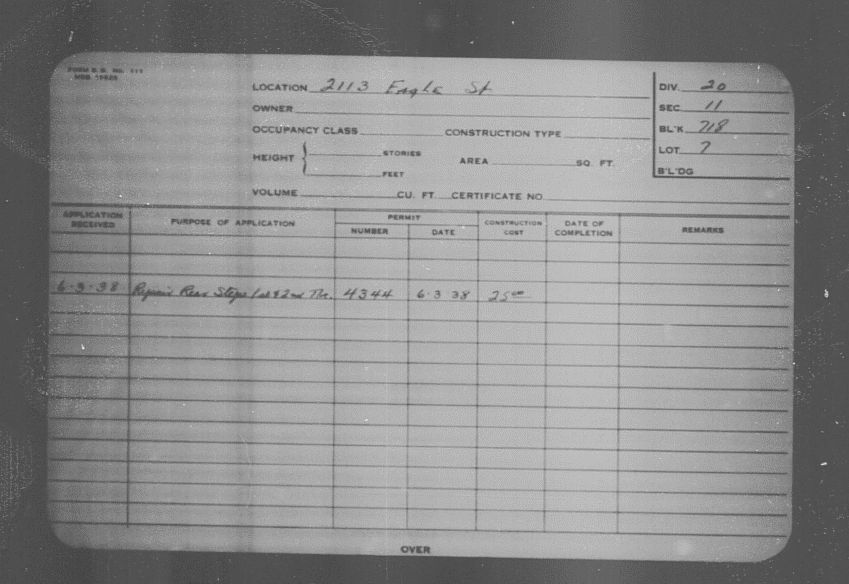 FORM B. B. No.
LOCATION 2113 Eagle St
OWNER
OCCUPANCY CLASS CONSTRUCTION TYPE
HEIGHT { STORIES AREA SQ. FT.
FEET
VOLUME CU. FT. CERTIFICATE NO.
DIV. 20
SEC 11
BL'K 718
LOT 7
B'L'DG
APPLICATION RECEIVED PURPOSE OF APPLICATION PERMIT NUMBER DATE CONSTRUCTION COST DATE OF COMPLETION REMARKS
6-3-38 Repair Rear Steps 1st & 2nd Flr. 4344 6-3-38 25 00
OVER